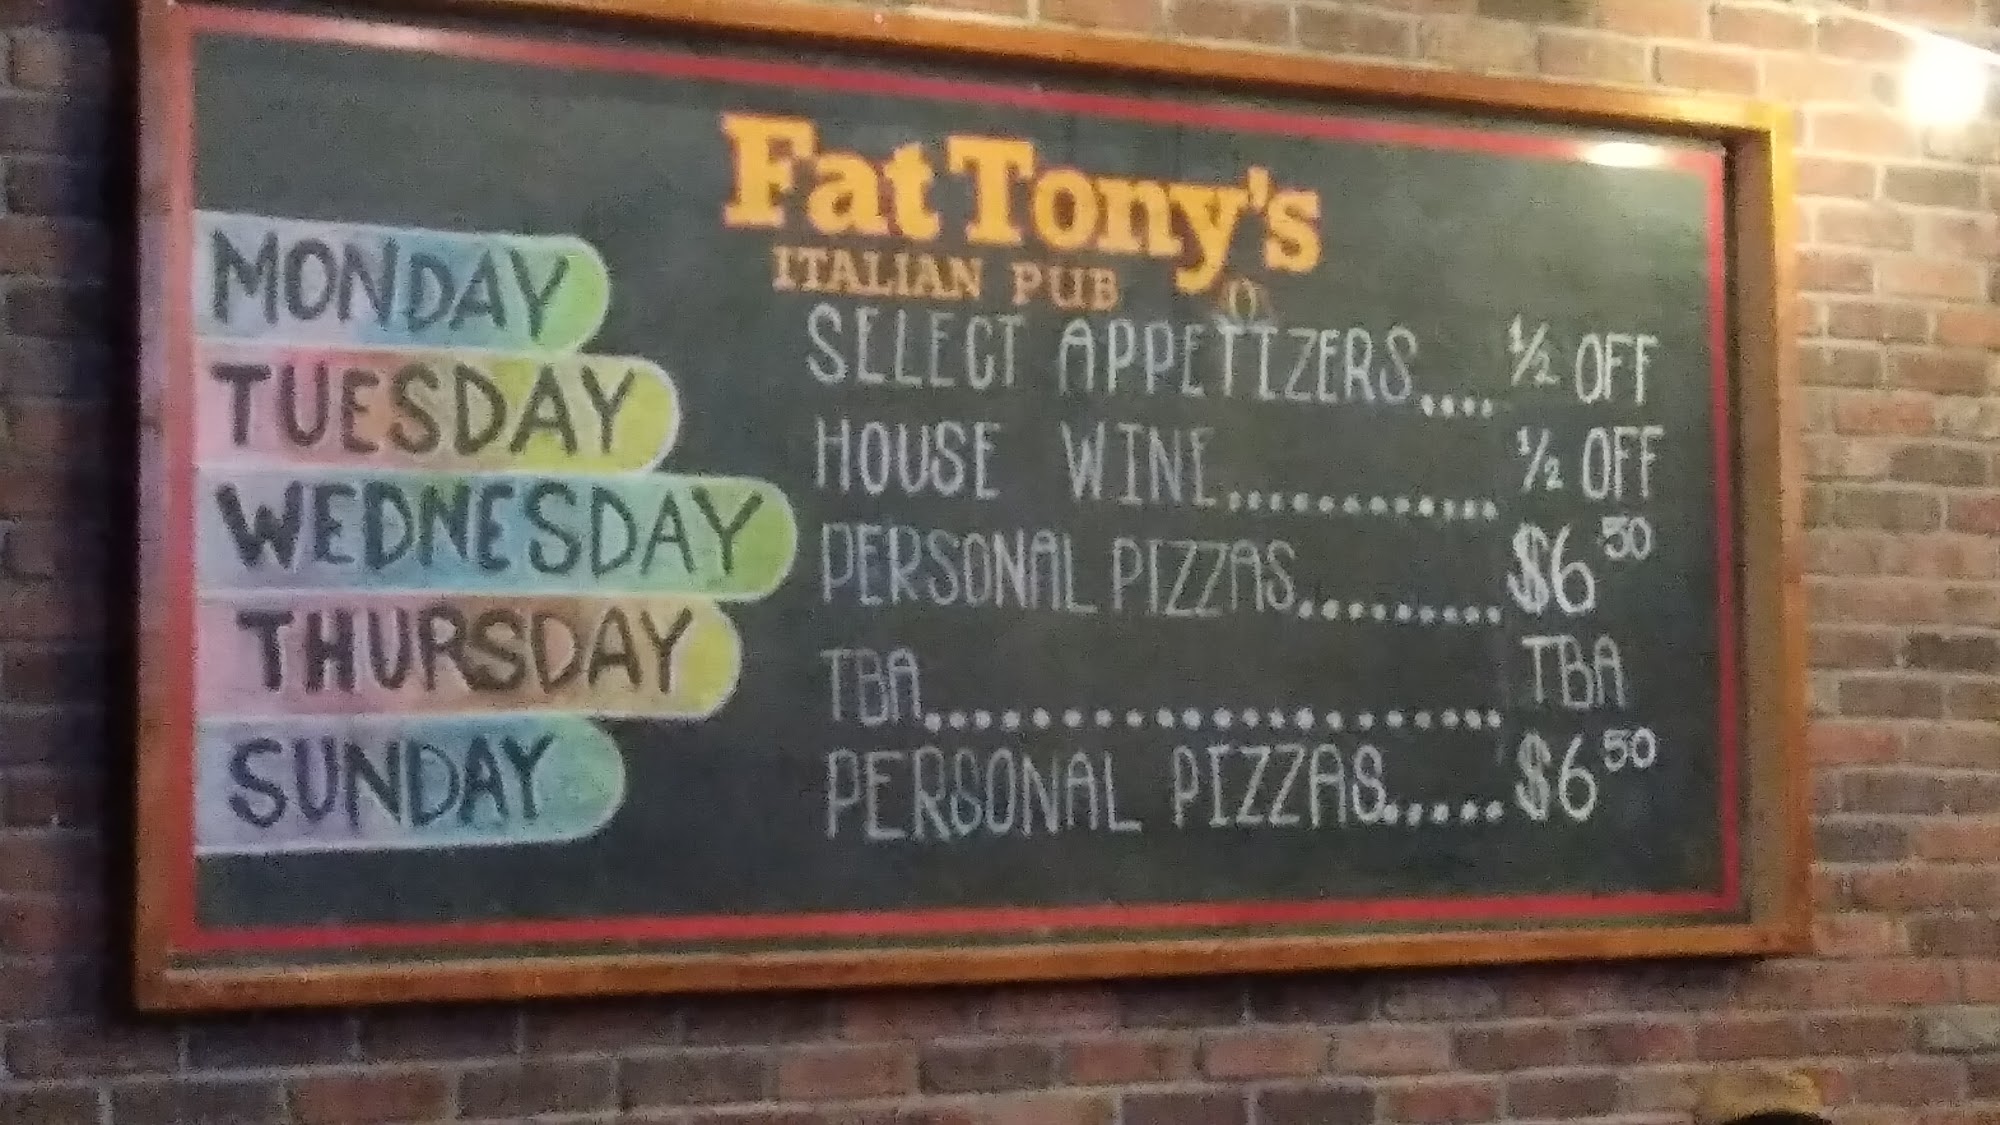 Fat Tony's
ITALIAN PUB
MONDAY SELECT APPETIZERS.... ½ OFF
TUESDAY HOUSE WINE............. ½ OFF
WEDNESDAY PERSONAL PIZZAS......... $6 50
THURSDAY TBA........................ TBA
SUNDAY PERSONAL PIZZAS..... $6 50